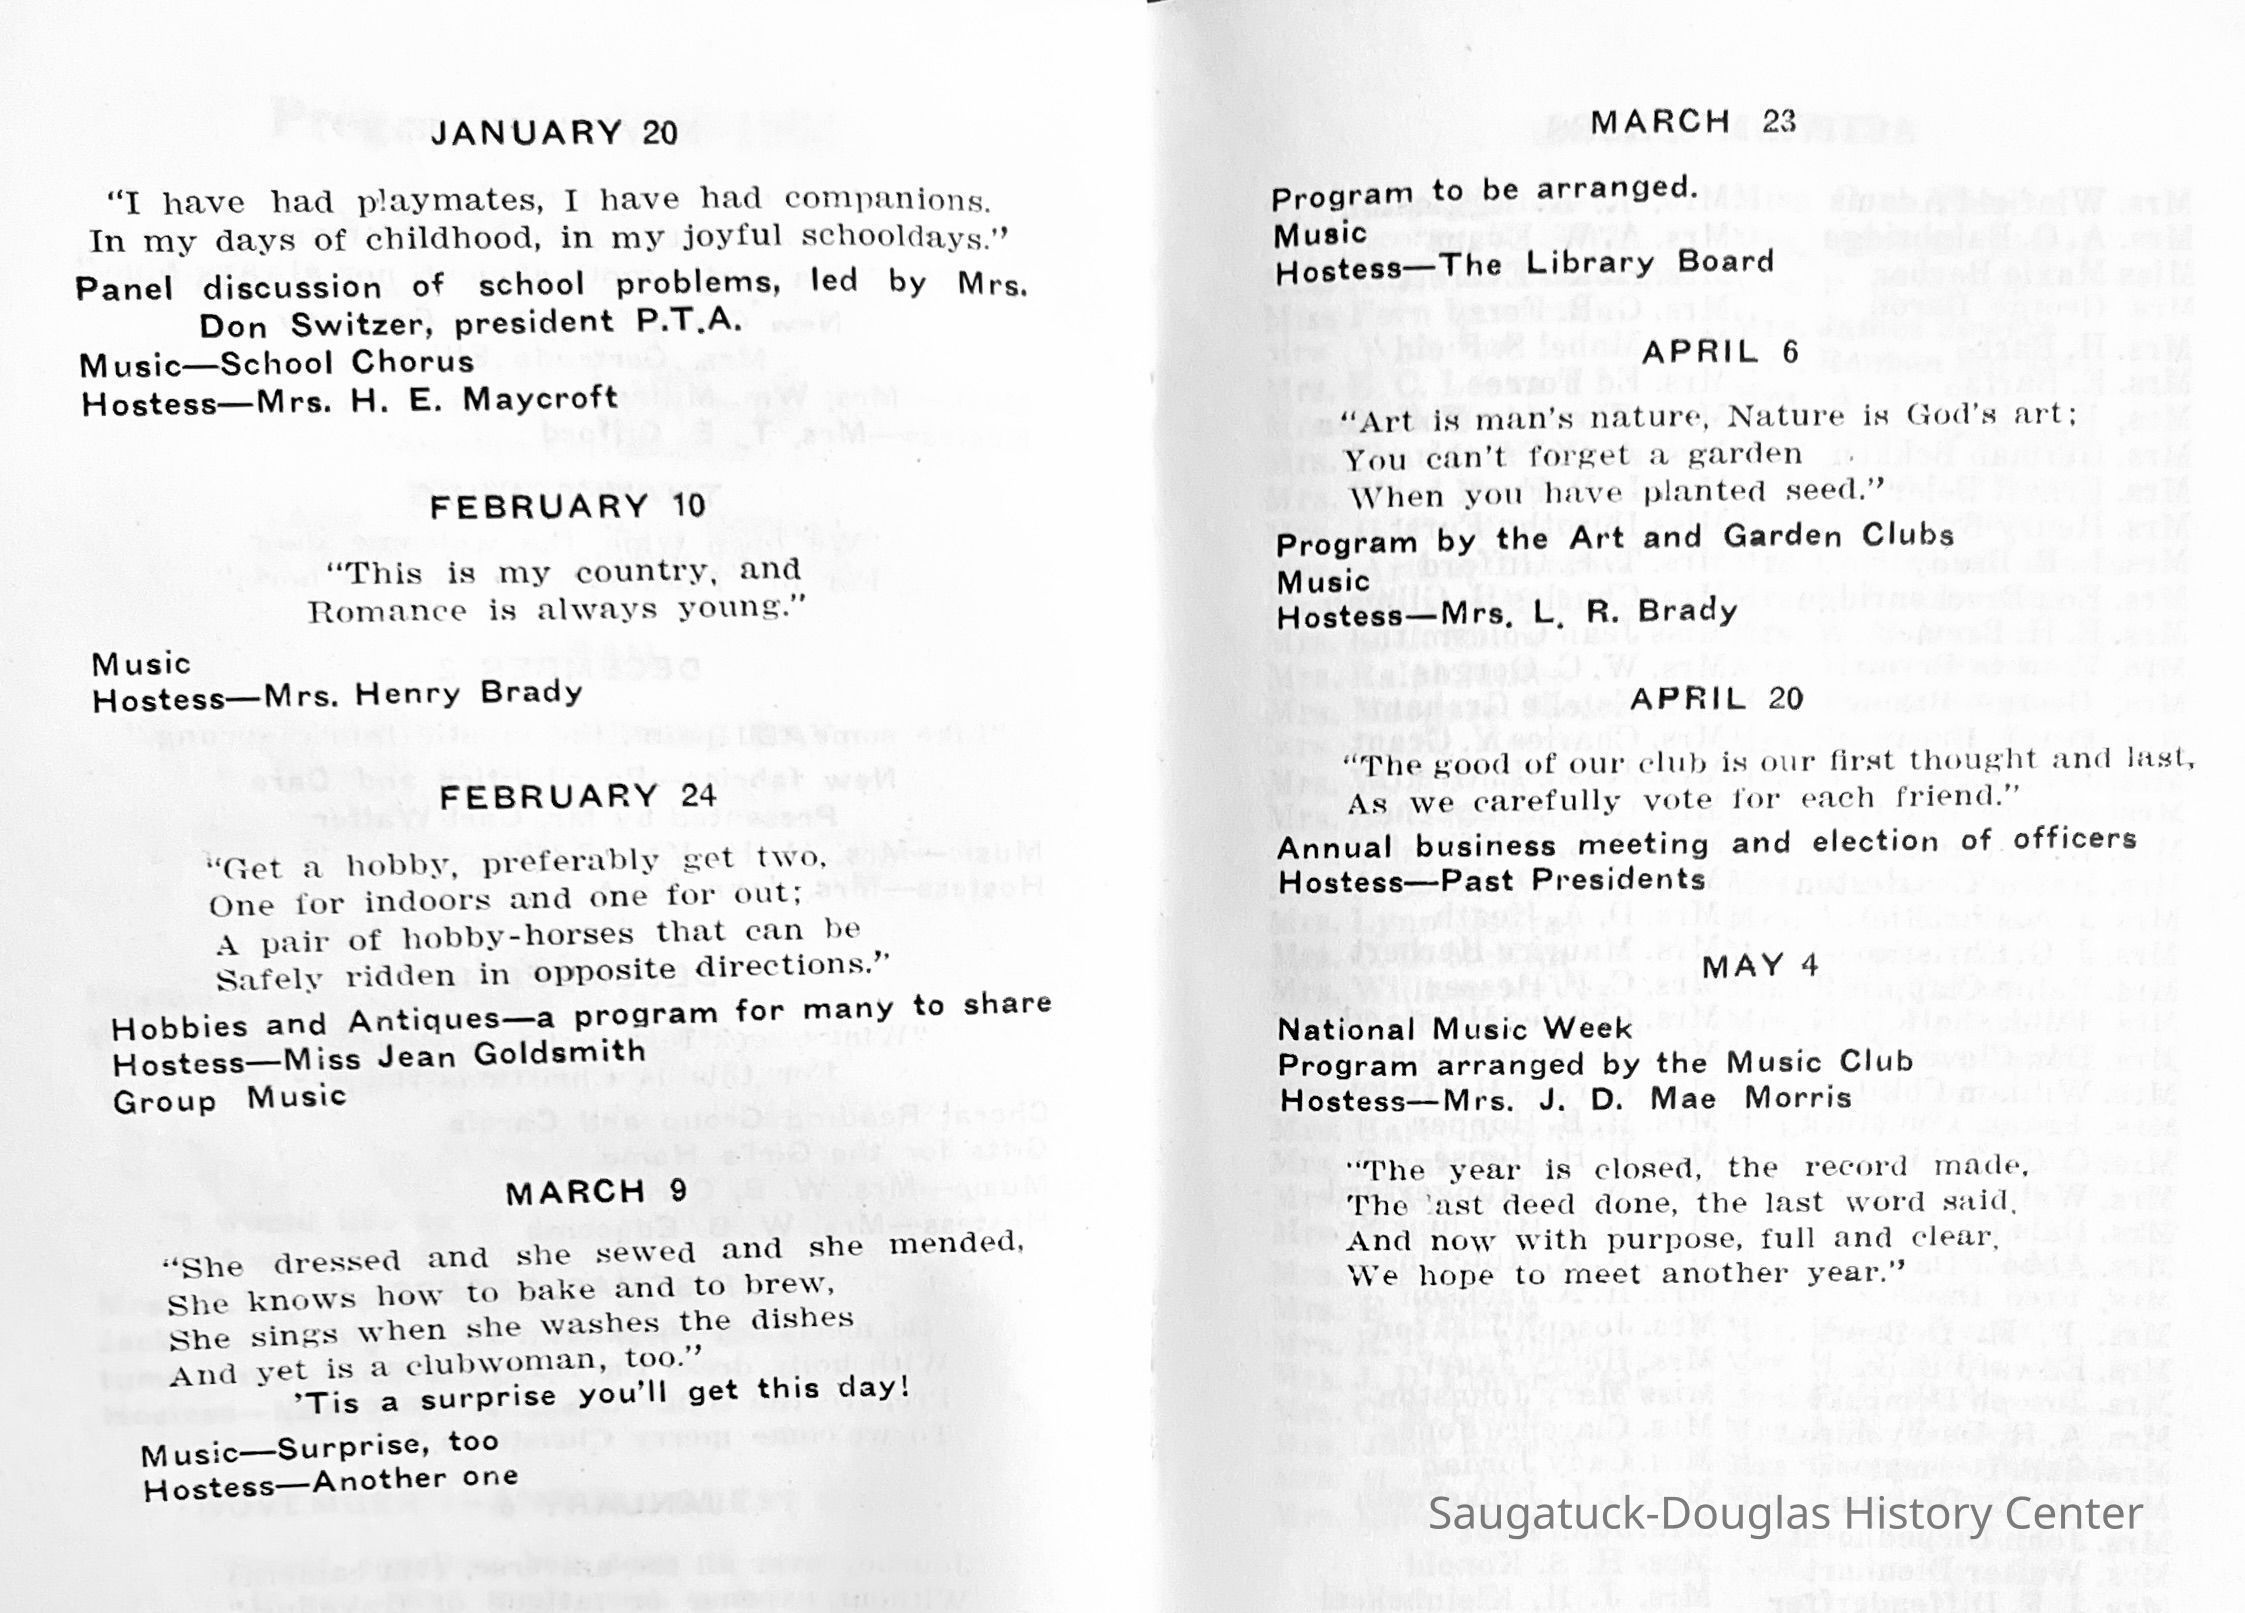 JANUARY 20
“I have had playmates, I have had companions.
In my days of childhood, in my joyful schooldays.”
Panel discussion of school problems, led by Mrs.
Don Switzer, president P.T.A.
Music—School Chorus
Hostess—Mrs. H. E. Maycroft
FEBRUARY 10
“This is my country, and
Romance is always young.”
Music
Hostess—Mrs. Henry Brady
FEBRUARY 24
“Get a hobby, preferably get two,
One for indoors and one for out;
A pair of hobby-horses that can be
Safely ridden in opposite directions.”
Hobbies and Antiques—a program for many to share
Hostess—Miss Jean Goldsmith
Group Music
MARCH 9
“She dressed and she sewed and she mended,
She knows how to bake and to brew,
She sings when she washes the dishes
And yet is a clubwoman, too.”
’Tis a surprise you’ll get this day!
Music—Surprise, too
Hostess—Another one
MARCH 23
Program to be arranged.
Music
Hostess—The Library Board
APRIL 6
“Art is man’s nature, Nature is God’s art;
You can’t forget a garden
When you have planted seed.”
Program by the Art and Garden Clubs
Music
Hostess—Mrs. L. R. Brady
APRIL 20
“The good of our club is our first thought and last,
As we carefully vote for each friend.”
Annual business meeting and election of officers
Hostess—Past Presidents
MAY 4
National Music Week
Program arranged by the Music Club
Hostess—Mrs. J. D. Mae Morris
“The year is closed, the record made,
The last deed done, the last word said,
And now with purpose, full and clear,
We hope to meet another year.”
Saugatuck-Douglas History Center